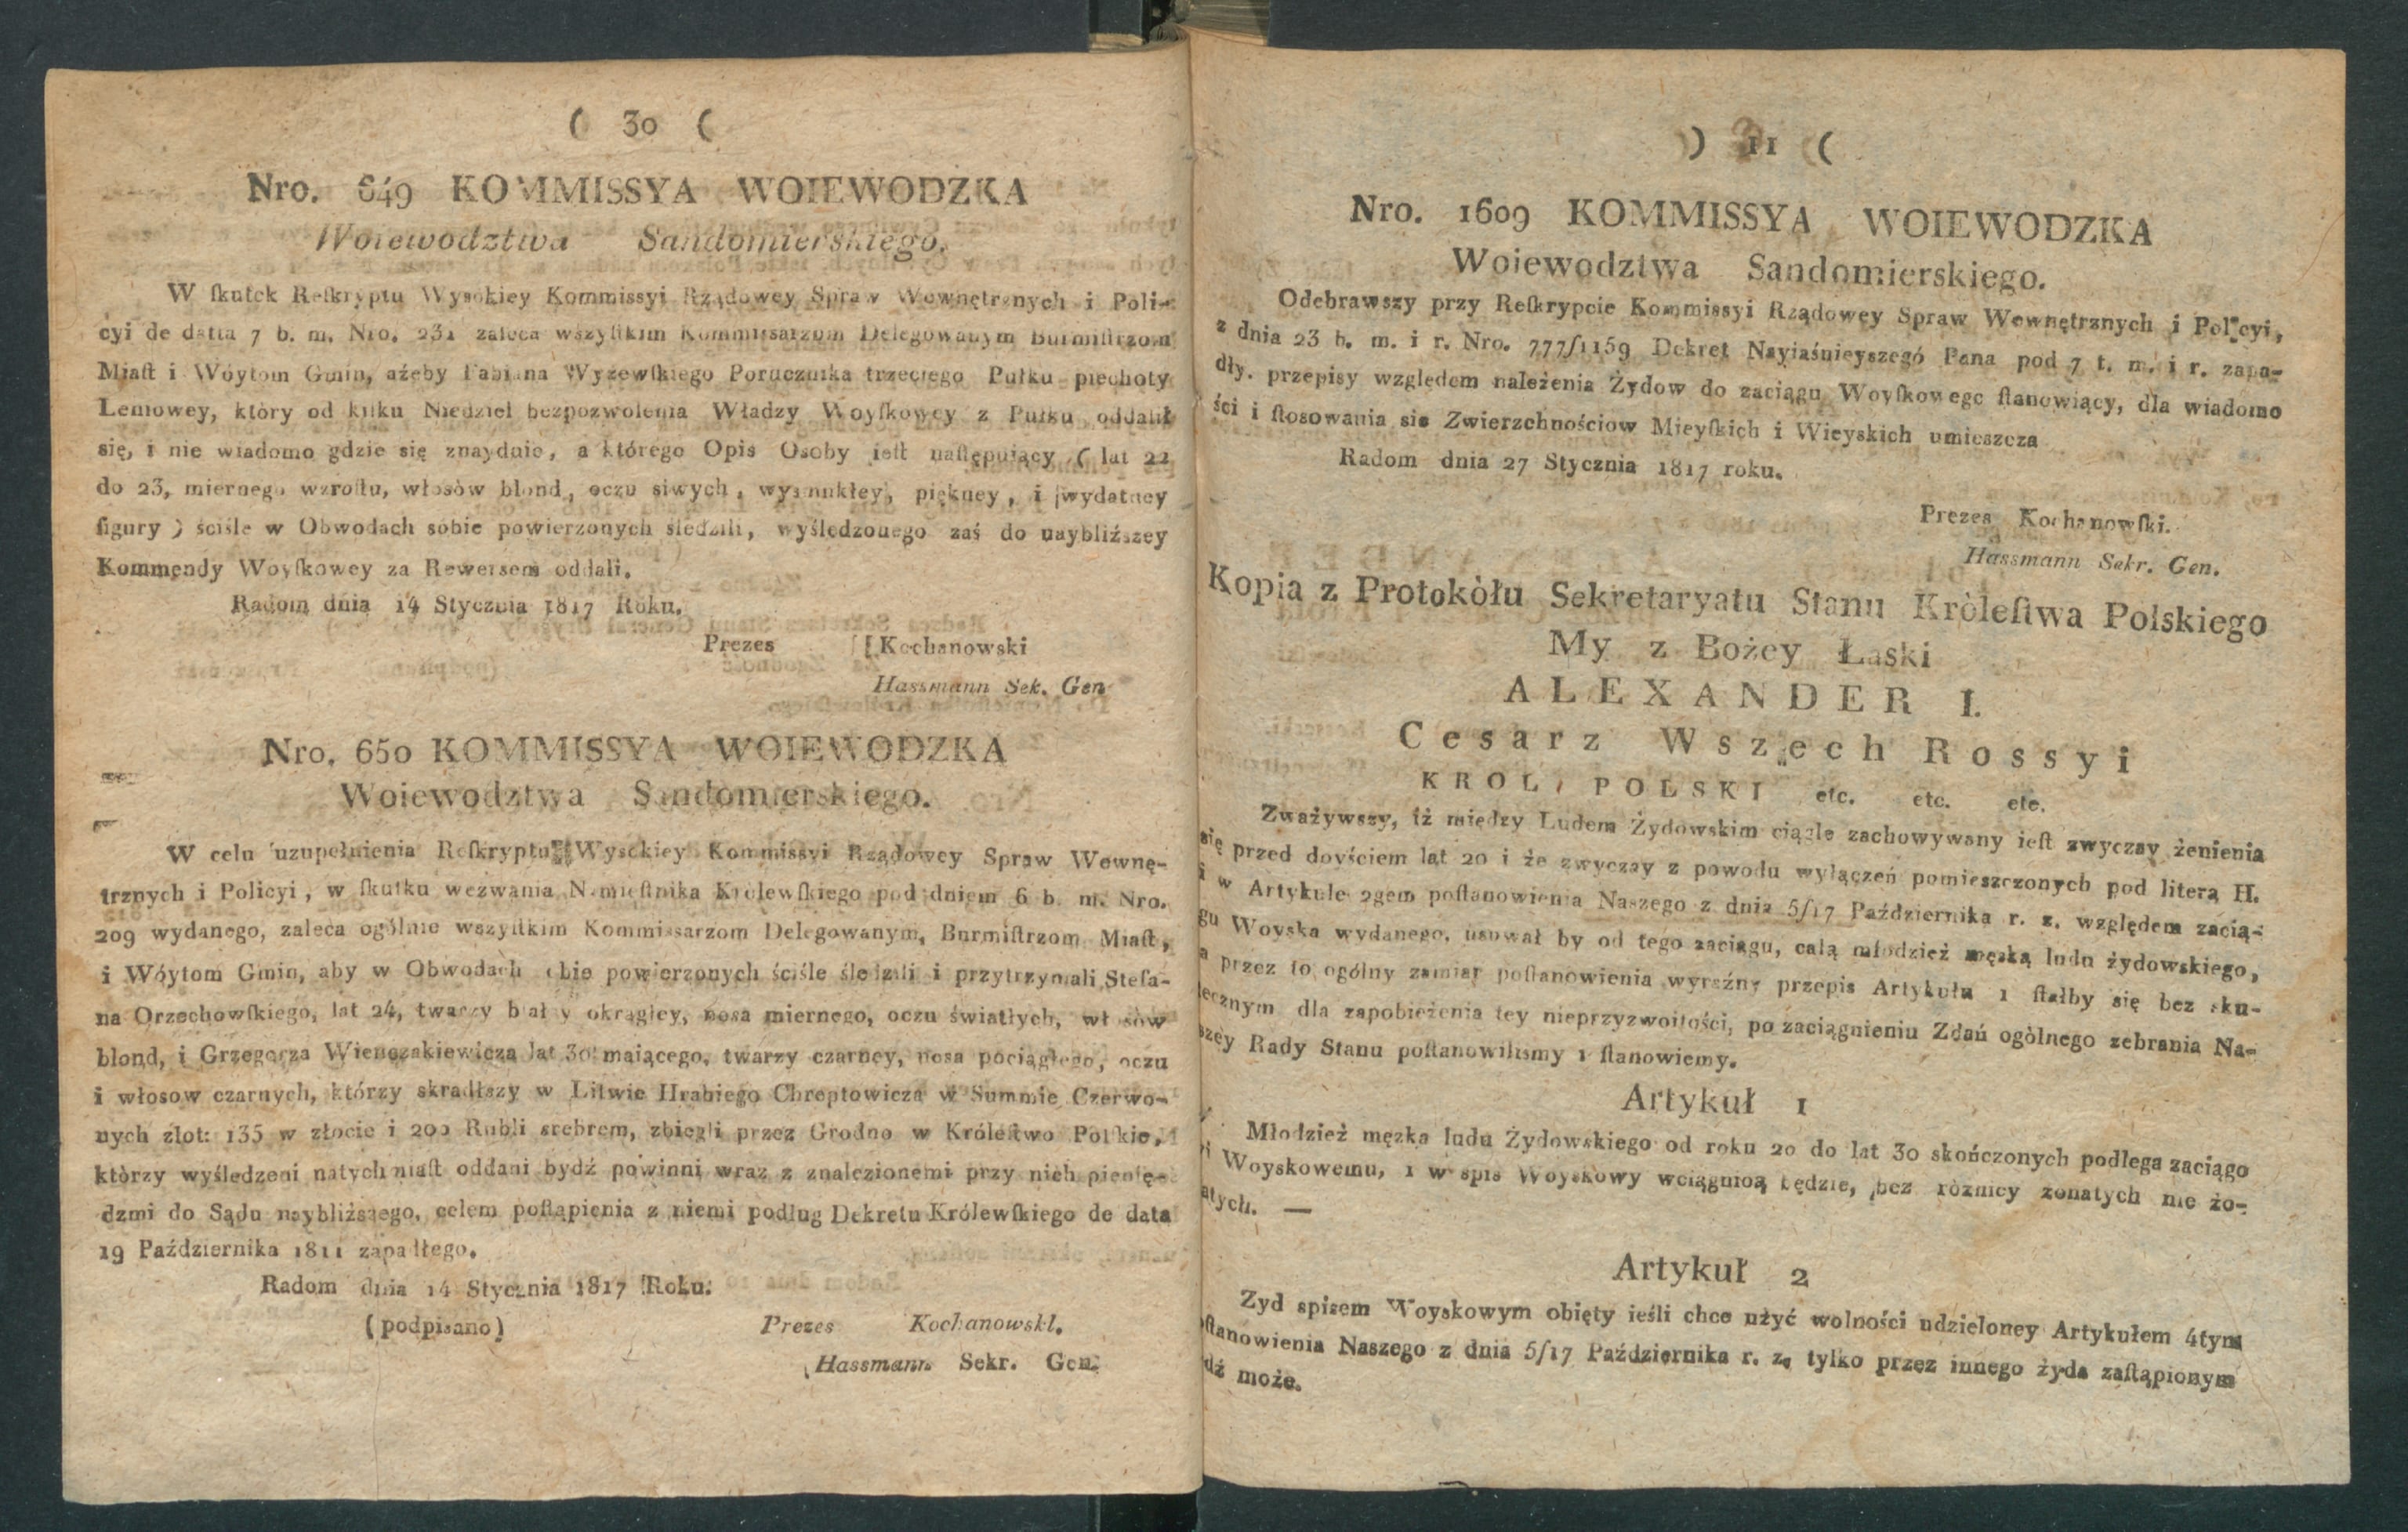 ( 30 (
Nro. 649 KOMMISSYA WOIEWODZKA
Woiewodztwa Sandomierskiego.
W ſkutek Reſkryptu Wysokiey Kommissyi Rządowey Spraw Wewnętrznych i Poli-
cyi de datta 7 b. m. Nro. 231 zaleca wszyſtkim Kommissarzom Delegowanym Burmiſtrzom
Miaſt i Wóytom Gmin, ażeby Fabiana Wyżewſkiego Porucznika trzeciego Pułku piechoty
Leniowey, który od kilku Niedziel bezpozwolenia Władzy Woyſkowey z Pułku oddalił
się, i nie wiadomo gdzie się znayduie, a którego Opis Osoby ieſt naſtępuiący ( lat 22
do 23, miernego wzroſtu, włosòw blond, oczu siwych, wysmukłey, piękney, i wydatney
figury ) ściśle w Obwodach sobie powierzonych śledzili, wyśledzonego zaś do naybliźszey
Kommendy Woyſkowey za Rewersem oddali.
Radom dnia 14 Stycznia 1817 Roku.
Prezes [Kochanowski
Hassmann Sek. Gen
Nro. 650 KOMMISSYA WOIEWODZKA
Woiewodztwa Sandomierskiego.
W celu uzupełnienia Reſkryptu Wysokiey Kommissyi Rządowey Spraw Wewnę-
trznych i Policyi, w ſkutku wezwania Namieſtnika Królewſkiego pod dniem 6 b. m. Nro.
209 wydanego, zaleca ogólnie wszyſtkim Kommissarzom Delegowanym, Burmiſtrzom Miaſt,
i Wóytom Gmin, aby w Obwodach sobie powierzonych ściśle śledzili i przytrzymali Stefa-
na Orzechowſkiego, lat 24, twarzy białey okrągłey, nosa miernego, oczu światłych, włosòw
blond, i Grzegorza Wienczakiewicza lat 30 maiącego, twarzy czarney, nosa pociągłego, oczu
i włosow czarnych, którzy skradłszy w Litwie Hrabiego Chreptowicza w Summie Czerwo-
nych złot: 135 w złocie i 200 Rubli srebrem, zbiegli przez Grodno w Króleſtwo Polſkie,
którzy wyśledzeni natychmiaſt oddani bydź powinni wraz z znalezionemi przy nich pienię-
dzmi do Sądu naybliższego, celem poſtąpienia z niemi podług Dekretu Królewſkiego de data
19 Października 1811 zapadłego.
Radom dnia 14 Stycznia 1817 Roku.
(podpisano) Prezes Kochanowskl.
Hassmann Sekr. Gen.
) 11 (
Nro. 1609 KOMMISSYA WOIEWODZKA
Woiewodztwa Sandomierskiego.
Odebrawszy przy Reſkrypcie Kommissyi Rządowey Spraw Wewnętrznych i Policyi,
z dnia 23 b. m. i r. Nro. 777/1159 Dekret Nayiaśnieyszegó Pana pod 7 t. m. i r. zapa-
dły. przepisy względem należenia Żydow do zaciągu Woyſkowego ſtanowiący, dla wiadomo
ści i ſtosowania sie Zwierzchnościow Mieyſkich i Wieyskich umieszcza
Radom dnia 27 Stycznia 1817 roku.
Prezes Kochanowſki.
Hassmann Sekr. Gen.
Kopia z Protokòłu Sekretaryatu Stanu Kròleſtwa Polskiego
My z Bożey Łaski
ALEXANDER I.
Cesarz Wszech Rossyi
KROL POLSKI etc. etc. etc.
Zważywszy, iż między Ludem Żydowskim ciągle zachowywany ieſt zwyczay żenienia
się przed doyściem lat 20 i że zwyczay z powodu wyłączeń pomieszczonych pod literą H.
i w Artykule 2gem poſtanowienia Naszego z dnia 5/17 Października r. z. względem zacią-
gu Woyska wydanego, usuwał by od tego zaciągu, całą młodzież męską ludu żydowskiego,
a przez to ogólny zamiar poſtanowienia wyraźny przepis Artykułu 1 ſtałby się bez sku-
tecznym dla zapobieżenia tey nieprzyzwoitości, po zaciągnieniu Zdań ogòlnego zebrania Na-
szey Rady Stanu poſtanowiliśmy i ſtanowiemy.
Artykuł 1
Młodzież męzka ludu Żydowskiego od roku 20 do lat 30 skończonych podlega zaciągo
wi Woyskowemu, i w spis Woyskowy wciągnioą będzie, bez rożnicy żonatych nie żo-
natych. —
Artykuł 2
Zyd spisem Woyskowym obięty ieśli chce użyć wolności udzieloney Artykułem 4tym
oſtanowienia Naszego z dnia 5/17 Października r. z. tylko przez innego żyda zaſtąpionym
dź może.